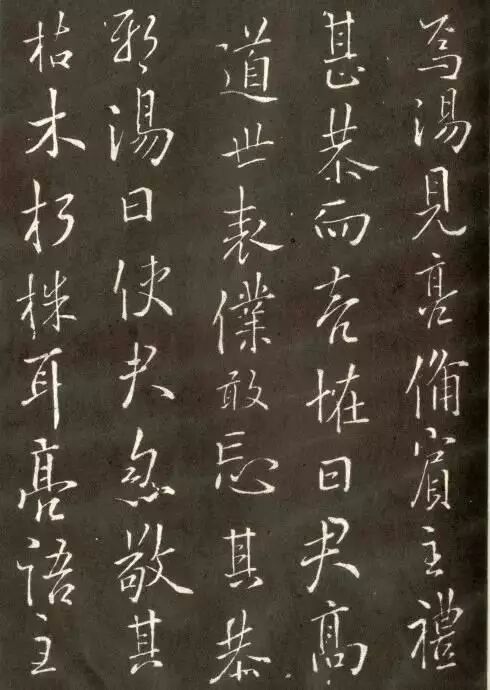 焉湯見亮備賓主禮
甚恭而言恠曰君高
道世表僕敢忘其恭
邪湯曰使君忽敬其
枯木朽株耳亮語主